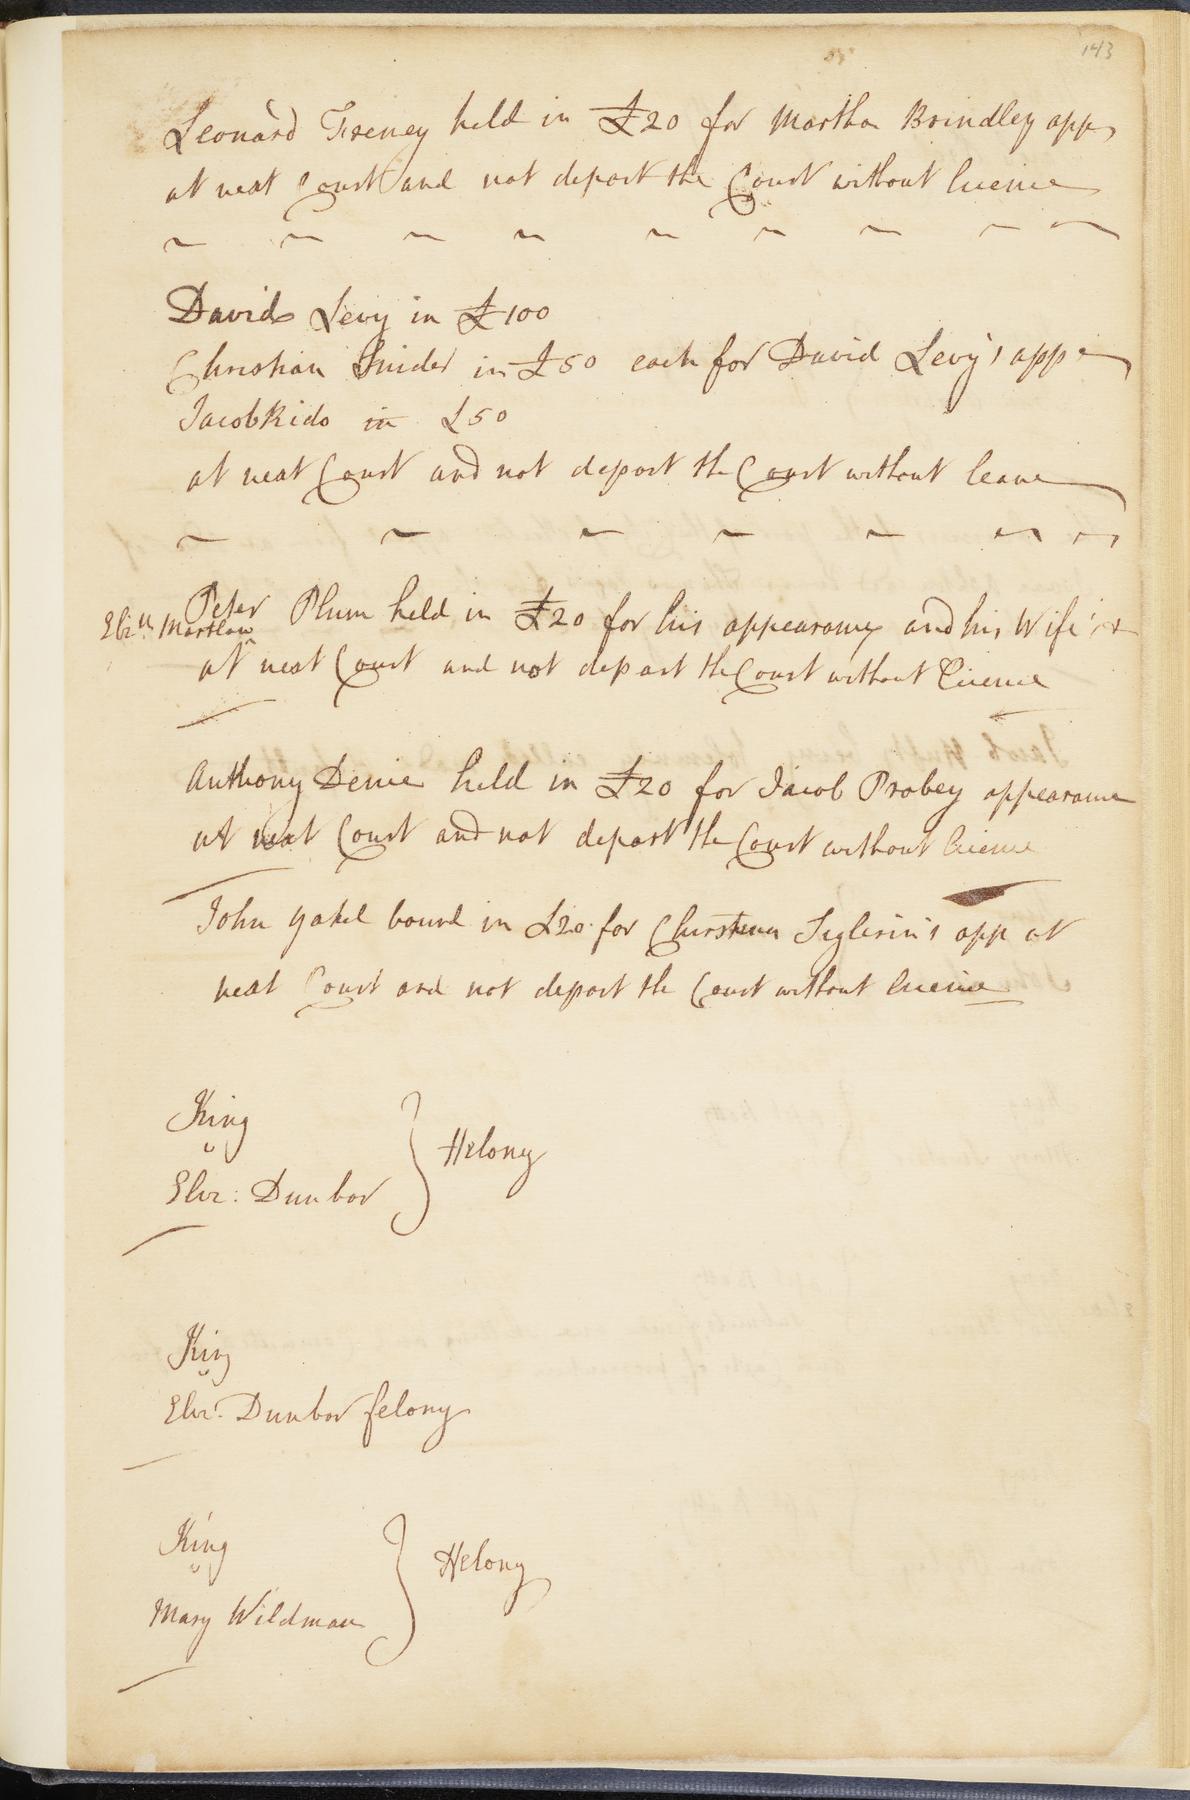 143
Leonard Treney held in £20 for Martha Brindley app
at next Court and not depart the Court without licence
David Levy in £100
Christian Snider in £50 each for David Levy's app
Jacob Rido in £50
at next Court and not depart the Court without leave
Peter Plum held in £20 for his appearance and his Wife
Eliz:th Marslow
at next Court and not depart the Court without licence
Anthony Denie held in £20 for Jacob Probey appearance
at next Court and not depart the Court without licence
John Yakel bound in £20 for Christina Siglerin's app at
next Court and not depart the Court without licence
King
v
Eliz: Dunbar
Felony
King
v
Eliz: Dunbar felony
King
v
Mary Wildman
Felony